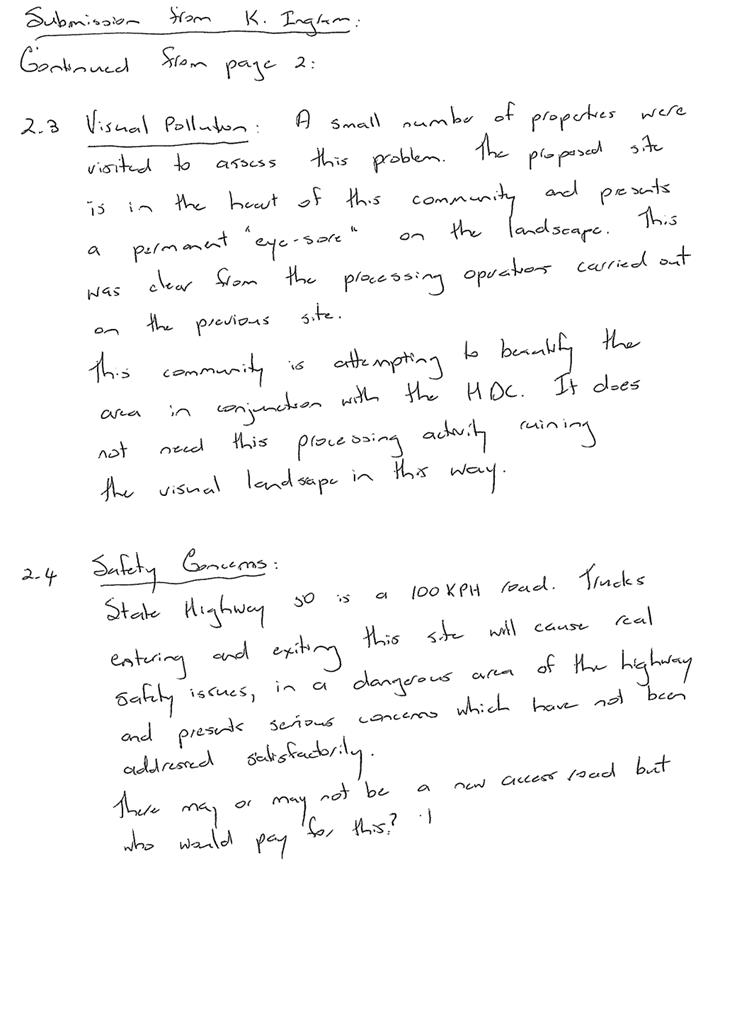 Submission from K. Ingram:
Continued from page 2:
2.3 Visual Pollution: A small number of properties were
visited to assess this problem. The proposed site
is in the heart of this community and presents
a permanent "eye-sore" on the landscape. This
was clear from the processing operations carried out
on the previous site.
This community is attempting to beautify the
area in conjunction with the HDC. It does
not need this processing activity ruining
the visual landsape in this way.
2.4 Safety Concerns:
State Highway 50 is a 100 KPH road. Trucks
entering and exiting this site will cause real
safety issues, in a dangerous area of the highway
and presents serious concerns which have not been
addressed satisfactorily.
There may or may not be a new access road but
who would pay for this?